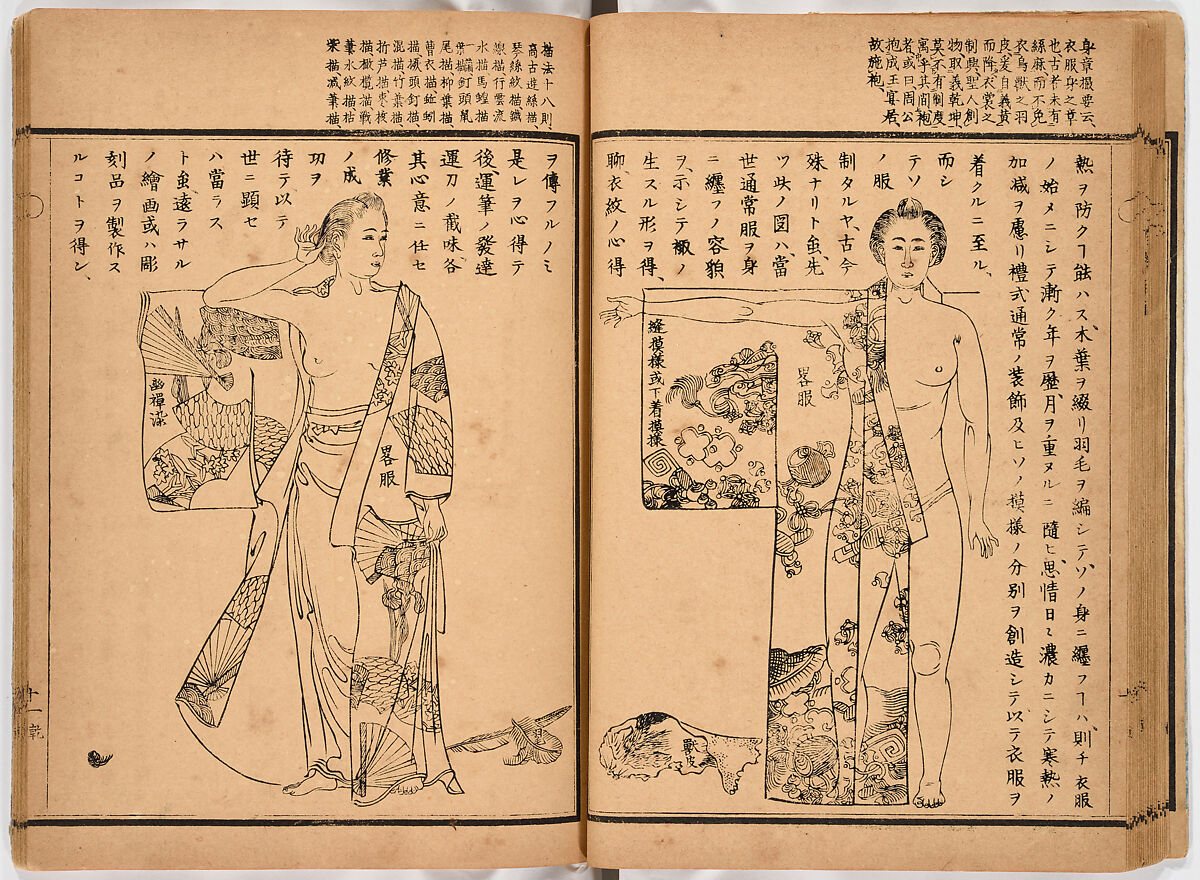 身章撮要云、
衣服身之章
也、古者未有
絲麻、而不免
衣鳥獸之羽
皮、爰自羲黄
而降、衣裳之
制興、聖人創
物、取義乾坤、
莫不有制度
寓乎其間、袍
者、或曰周公
抱成王宴居、
故施袍、
熱ヲ防クヿ能ハス、木葉ヲ綴リ羽毛ヲ編シテ、ソノ身ニ纒フヿハ、則チ衣服
ノ始メニシテ、漸ク年ヲ歴、月ヲ重ヌルニ隨ヒ、思情日ニ濃カニシテ寒熱ノ
加减ヲ慮リ禮式通常ノ装飾及ヒソノ摸様ノ分别ヲ創造シテ以テ衣服ヲ
着クルニ至ル、
而シ
テソ
ノ服
制タルヤ、古今
殊ナリト虽、先
ツ此ノ圖ハ、當
世通常服ヲ身
ニ纒フノ容貌
ヲ示シテ襒ノ
生スル形ヲ得、
聊、衣紋ノ心得
縫摸樣或下着摸樣
畧服
獸皮
描法十八則、
高古遊絲描、
琴絲紋描、鐵
線描、行雲流
水描、馬蝗描
釘頭鼠
尾描、柳葉描、
曹衣描、蚯蚓
描、橛頭釘描、
混描、竹葉描、
折芦描、枣核
描、橄欖描、戰
筆水紋描、枯
柴描、减筆描、
ヲ傳フルノミ
是レヲ心得テ
後、運筆ノ發達
運刀ノ截味、各
其心意ニ任セ
修業
ノ成
功ヲ
待テ、以テ
世ニ顯セ
ハ當ラス
ト虽遠ラサル
ノ繪画或ハ彫
刻品ヲ製作ス
ルコトヲ得シ、
畧服
幽禪染
十一
乾